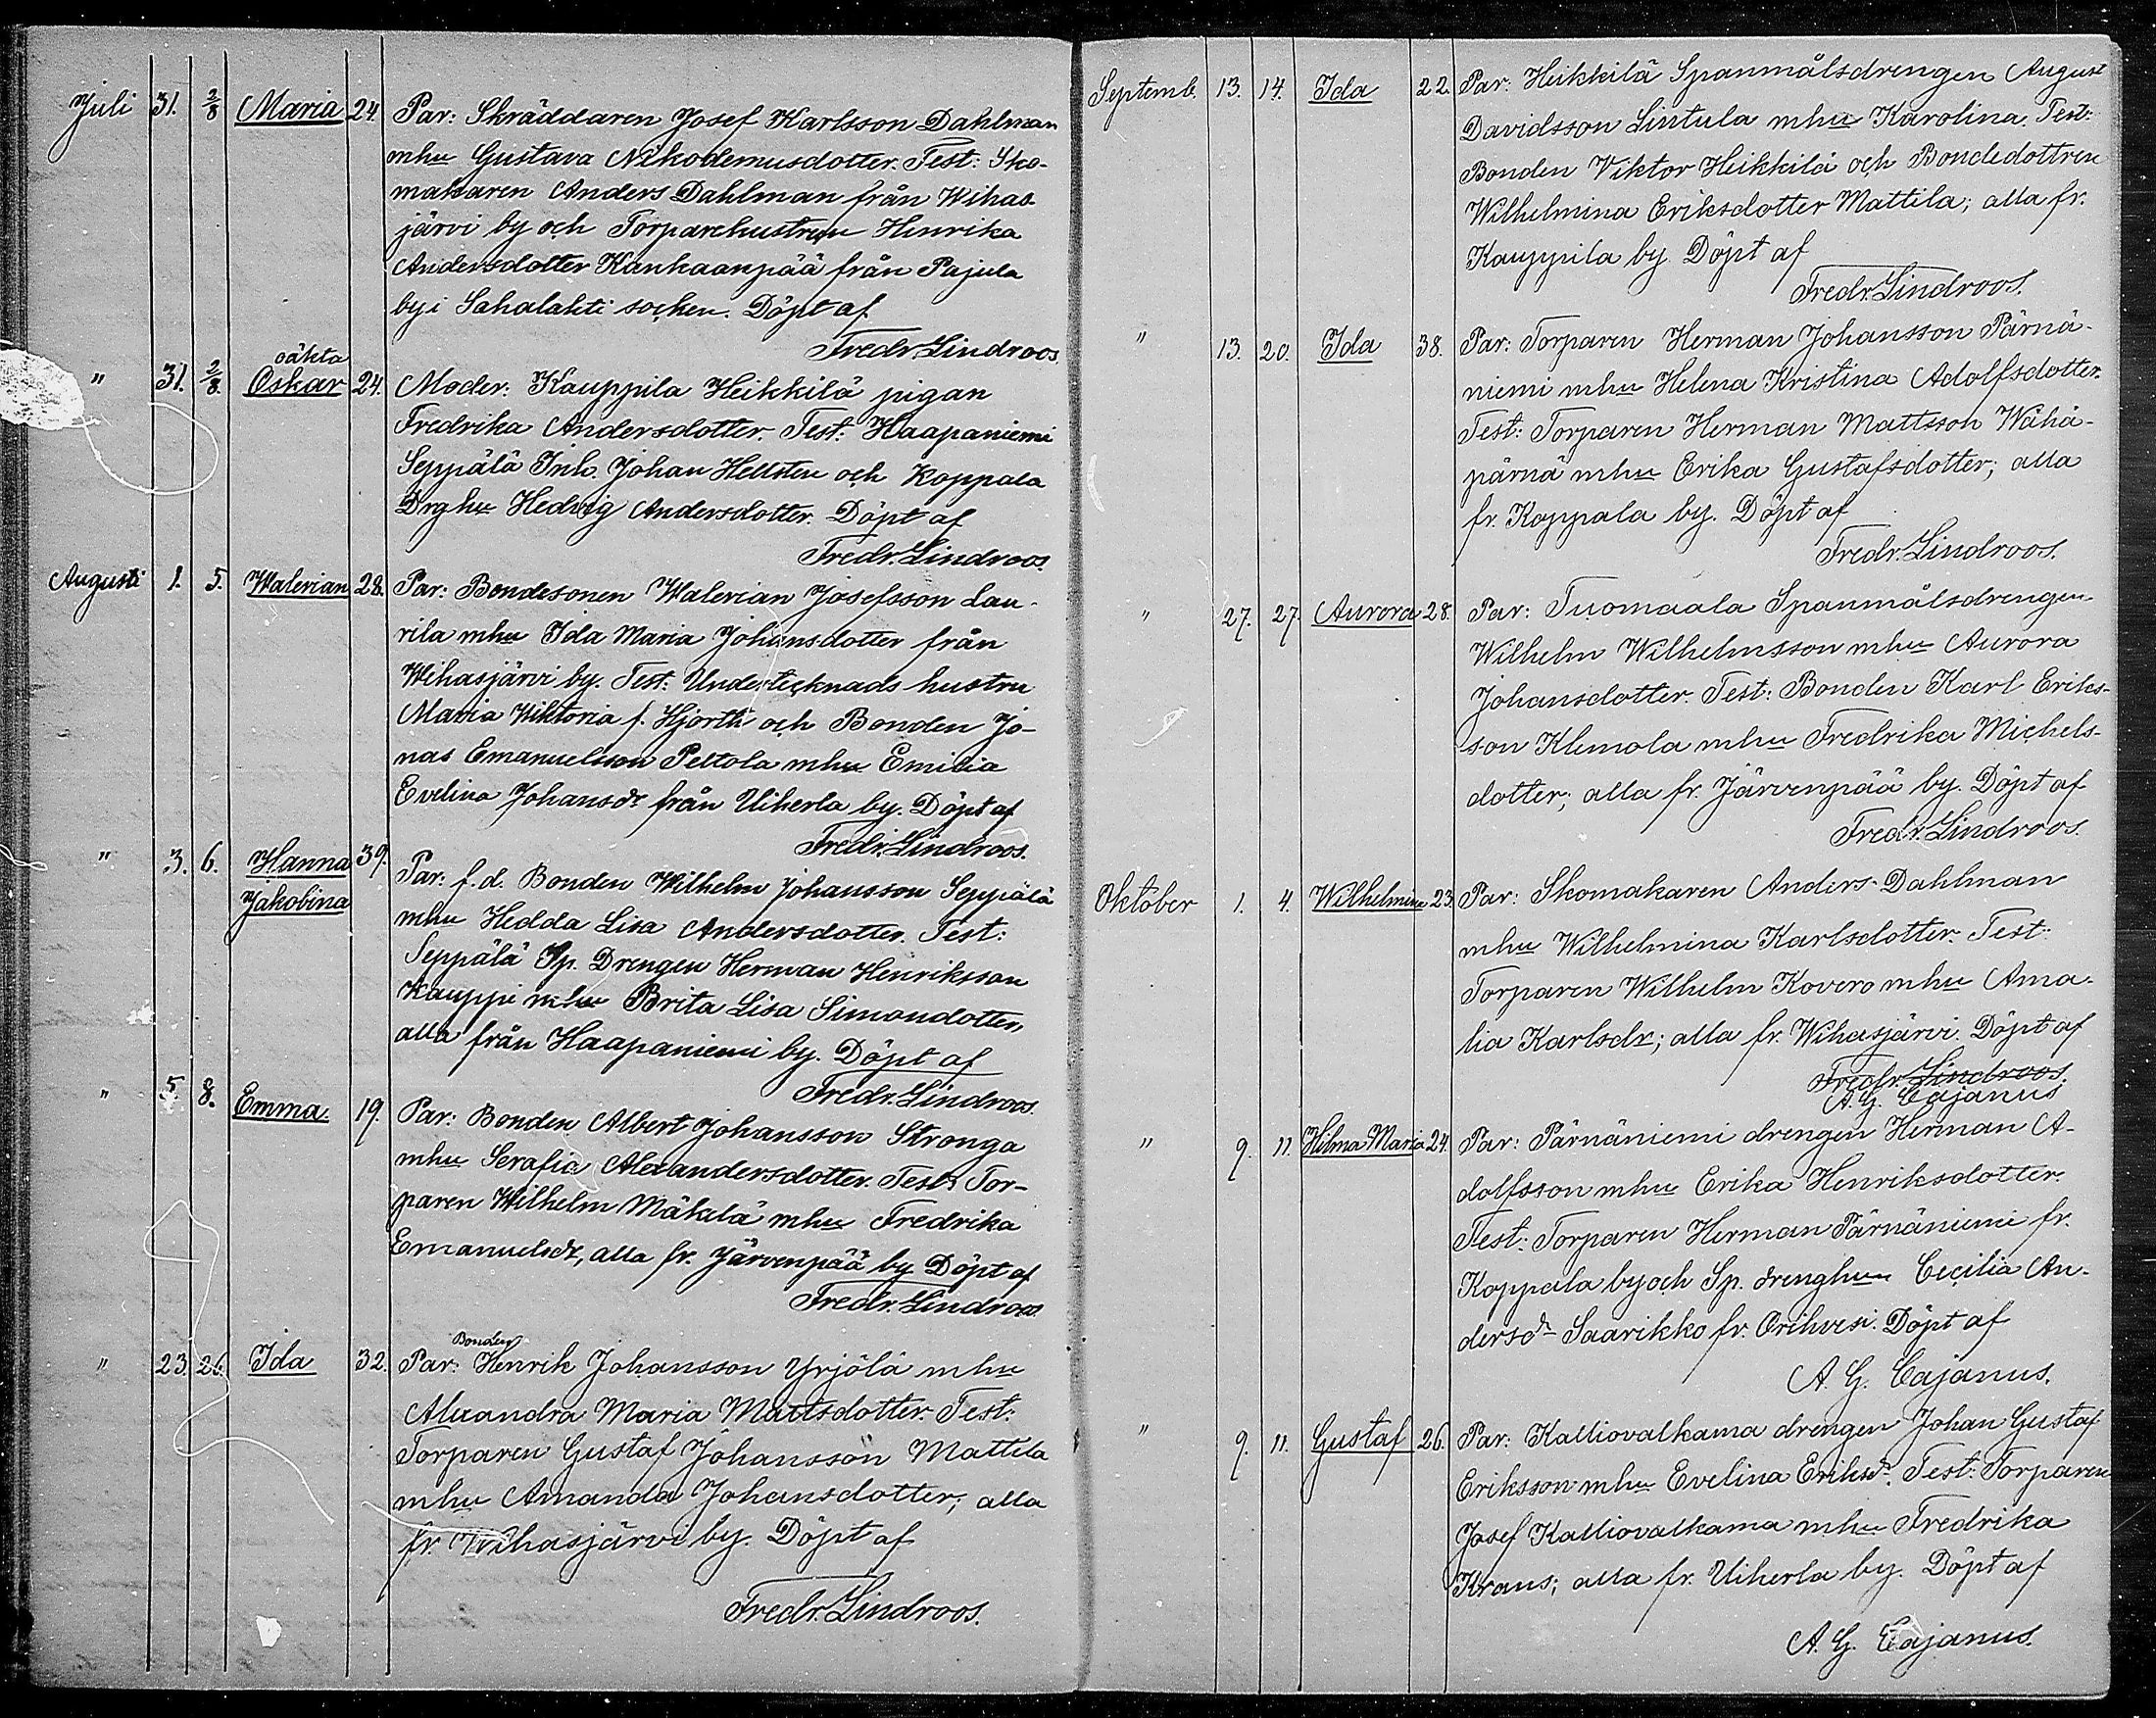 Juli 31. 2/8 Maria 24. Par: Skräddaren Josef Karlsson Dahlman
mhu Gustava Nikodemusdotter. Test: Sko-
makaren Anders Dahlman från Wihas-
järvi by och Torparehustrun Henrika
Andersdotter Kankaanpää från Pajula
by i Sahalahti socken. Döpt af
Fredr. Lindroos.
oäkta
" 31. 2/8. Oskar 24. Moder: Kauppila Heikkilä pigan
Fredrika Andersdotter. Test: Haapaniemi
Seppälä Inh. Johan Hellsten och Koppala
Drghu Hedvig Andersdotter. Döpt af
Fredr. Lindroos.
Augusti 1. 5. Walerian 28. Par: Bondesonen Walerian Josefsson Lau-
rila mhu Ida Maria Johansdotter från
Wihasjärvi by. Test: Undertecknads hustru
Maria Wiktoria f. Hjorth och Bonden Jo-
nas Emanuelsson Peltola mhu Emilia
Evelina Johansdr från Uiherla by. Döpt af
Fredr. Lindroos.
" 3. 6. Hanna 39. Par: f.d. Bonden Wilhelm Johansson Seppälä
Jakobina mhu Hedda Lisa Andersdotter. Test:
Seppälä Sp. Drengen Herman Henriksson
Kauppi mhu Brita Lisa Simondotter,
alla från Haapaniemi by. Döpt af
Fredr. Lindroos.
" 5. 8. Emma 19. Par: Bonden Albert Johansson Stronga
mhu Serafia Alexandersdotter. Test: Tor-
paren Wilhelm Mäkelä mhu Fredrika
Emanuelsdr, alla fr. Järvenpää by Döpt af
Fredr. Lindroos.
Bonden
" 23. 26. Ida 32. Par: Henrik Johansson Yrjölä mhu
Alexandra Maria Mattsdotter. Test:
Torparen Gustaf Johansson Mattila
mhu Amanda Johansdotter; alla
fr. Wihasjärvi by. Döpt af
Fredr. Lindroos.
Septemb. 13. 14. Ida 22. Par: Heikkilä Spanmålsdrengen August
Davidsson Lintula mhu Karolina. Test:
Bonden Viktor Heikkilä och Bondedottren
Wilhelmina Eriksdotter Mattila; alla fr.
Kauppila by. Döpt af
Fredr. Lindroos.
" 13. 20. Ida 38. Par: Torparen Herman Johansson Pärnä-
niemi mhu Helena Kristina Adolfsdotter.
Test: Torparen Herman Mattsson Wähä-
pärnä mhu Erika Gustafsdotter; alla
fr. Koppala by. Döpt af
Fredr. Lindroos.
" 27. 27. Aurora 28. Par: Tuomaala Spanmålsdrengen
Wilhelm Wilhelmsson mhu Aurora
Johansdotter. Test: Bonden Karl Eriks-
son Klemola mhu Fredrika Michels-
dotter; alla fr. Järvenpää by. Döpt af
Fredr. Lindroos.
Oktober 1. 4. Wilhelmina 23. Par: Skomakaren Anders Dahlman
mhu Wilhelmina Karlsdotter. Test:
Torparen Wilhelm Kovero mhu Ama-
lia Karlsdr; alla fr. Wihasjärvi. Döpt af
Fredr. Lindroos.
A. G. Cajanus
" 9. 11. Hilma Maria 24. Par: Pärnäniemi drengen Herman A-
dolfsson mhu Erika Henriksdotter.
Test: Torparen Herman Pärnäniemi fr.
Koppala by och Sp. drenghun Cecilia An-
dersdr Saarikko fr. Orihvesi. Döpt af
A. G. Cajanus.
" 9. 11. Gustaf 26. Par: Kalliovalkama drengen Johan Gustaf
Eriksson mhu Evelina Eriksdr. Test: Torparen
Josef Kalliovalkama mhu Fredrika
Kraus; alla fr. Uiherla by. Döpt af
A. G. Cajanus.